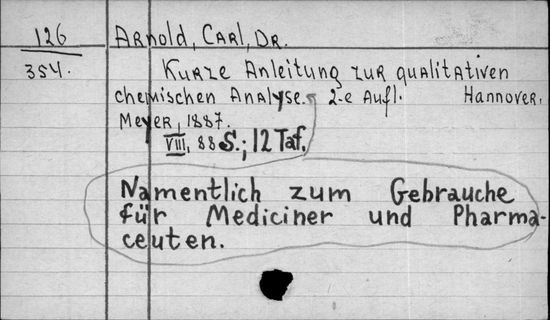 126 Arnold, Carl, Dr.
354. Kurze Anleitung zur qualitativen
chemischen Analyse. 2-e Aufl. Hannover.
Meyer, 1887.
VIII, 88 S.; 12 Taf.
Namentlich zum Gebrauche
für Mediciner und Pharma-
ceuten.